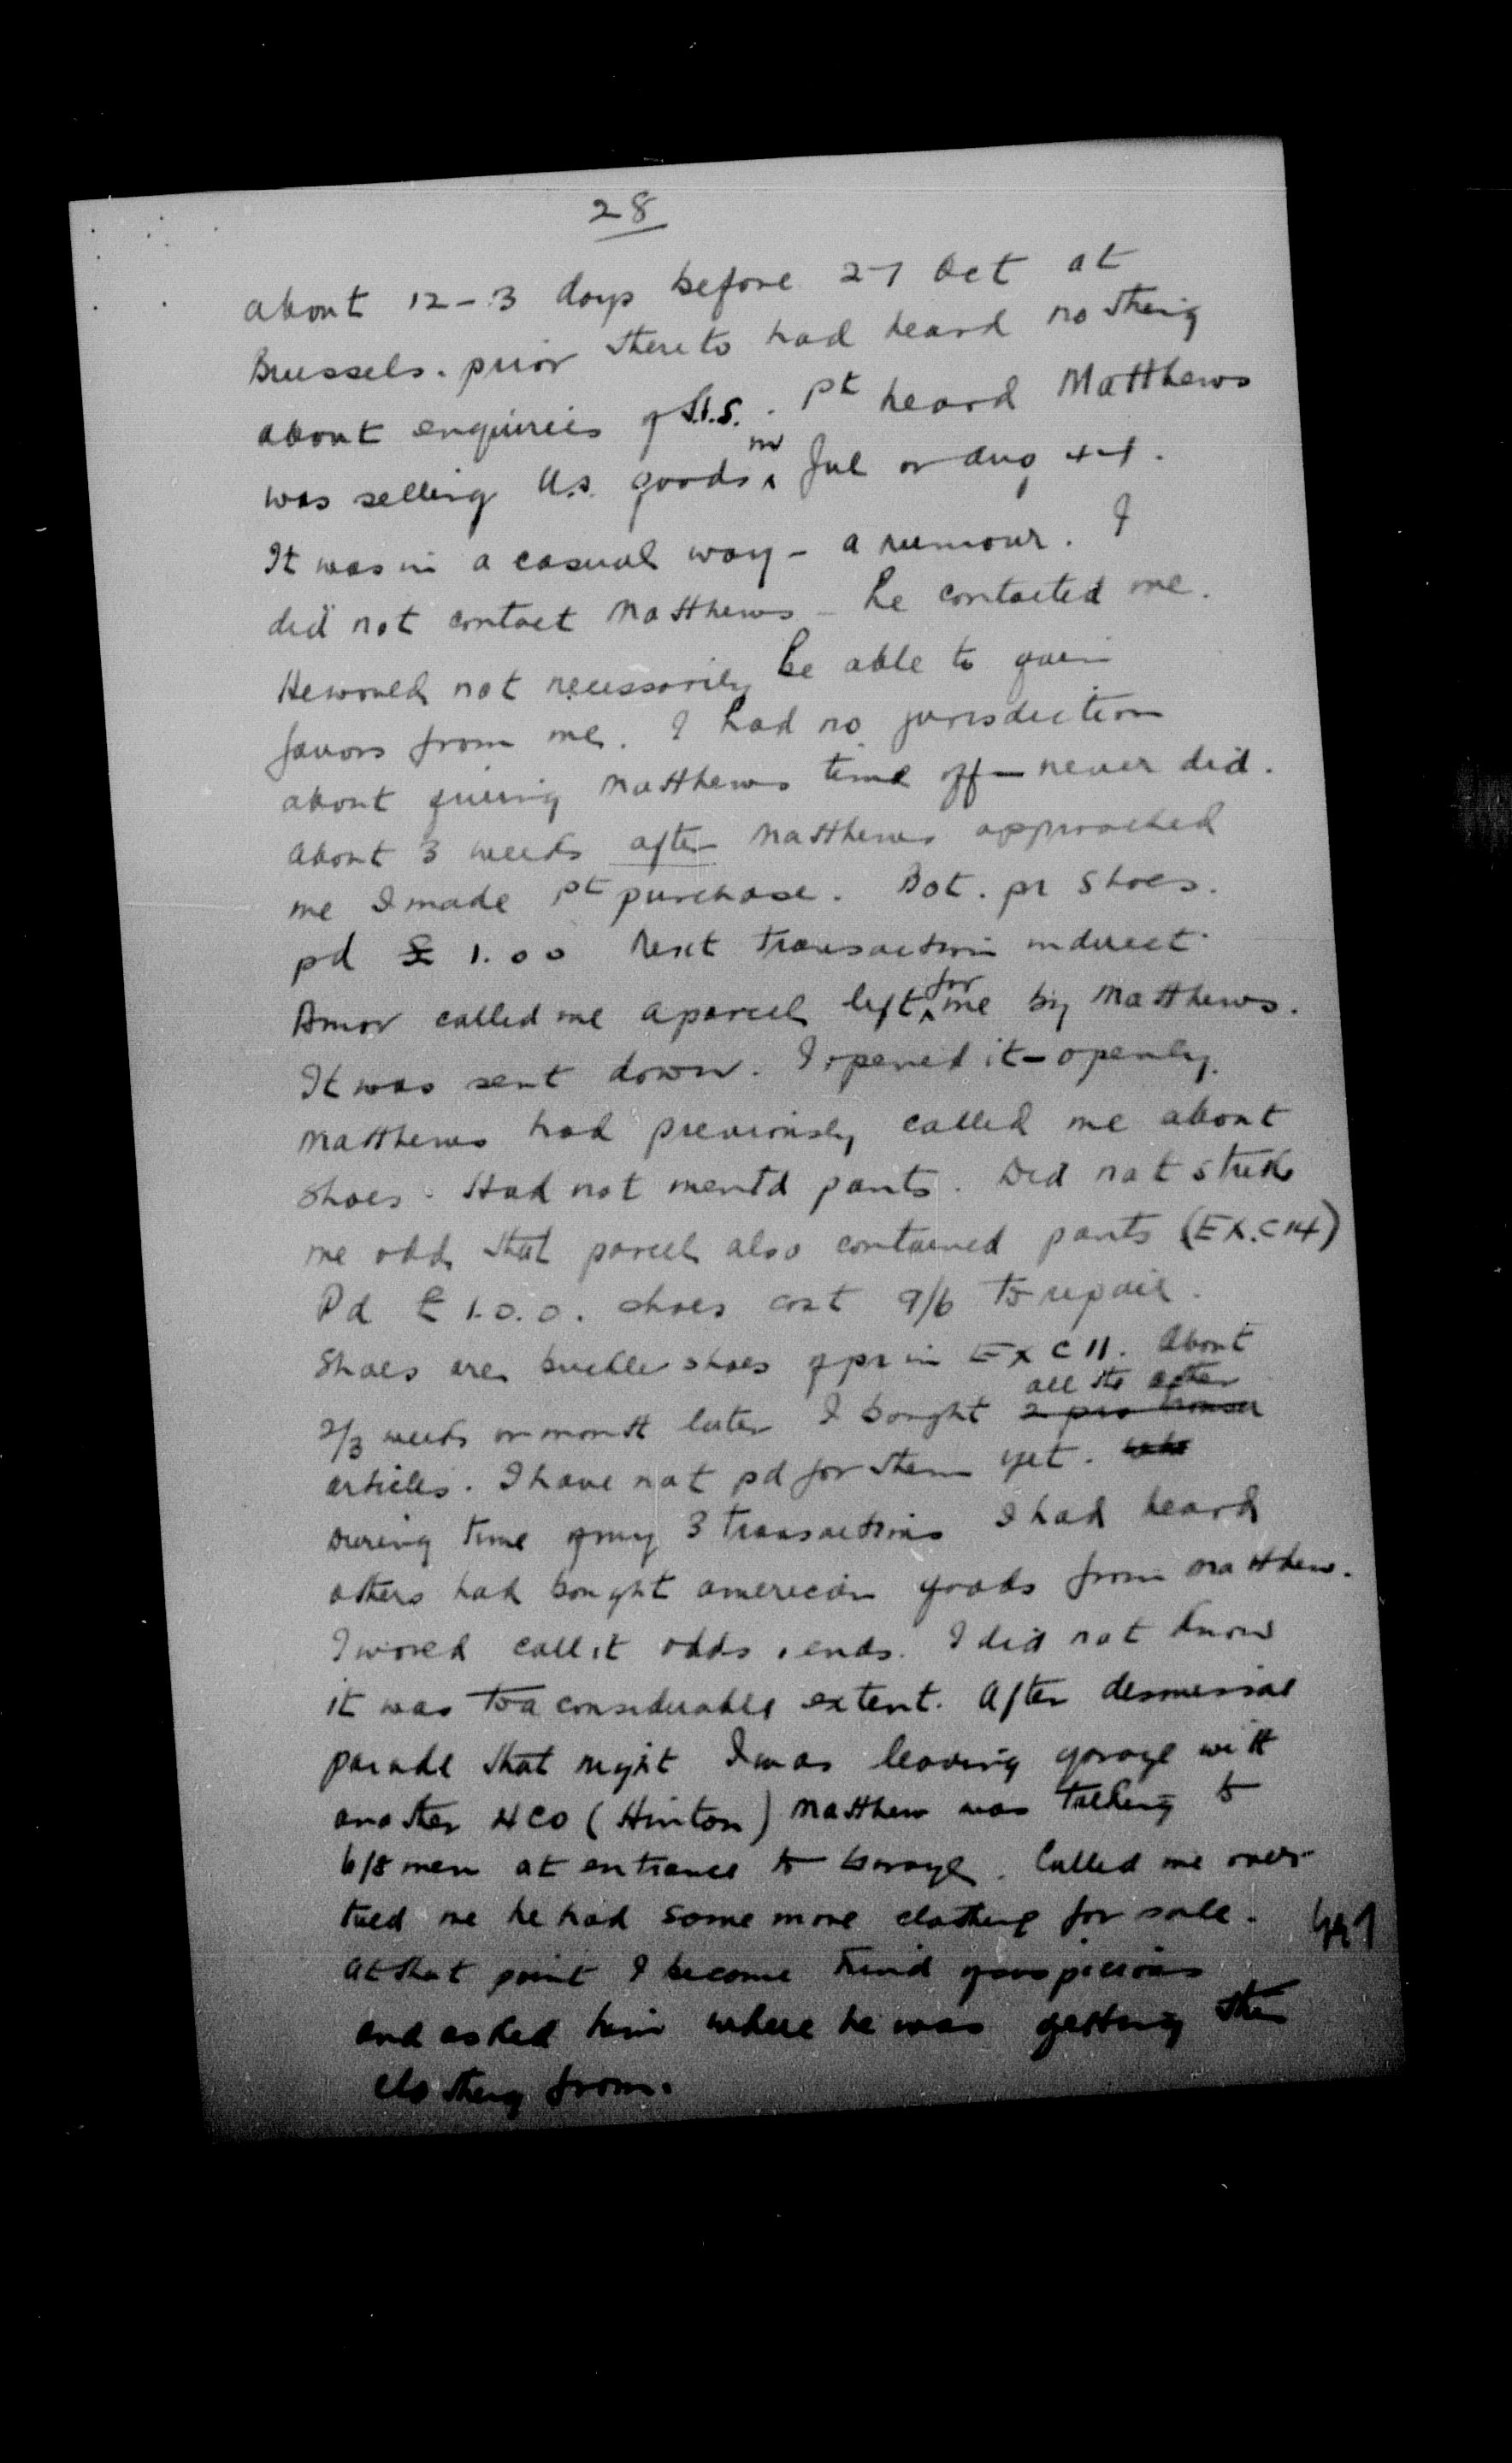 28
about 12-3 days before 27 Oct at
Brussels. prior thereto had heard nothing
about enquiries of S.I.S. . 1st heard Matthews
was selling U.S. goods in Jul or Aug 44.
It was in a casual way - a rumour. I
did not contact Matthews - he contacted me.
He would not necessarily be able to gain
favors from me. I had no jurisdiction
about giving Matthews time off - never did.
about 3 weeks after Matthews approached
me I made 1st purchase. Bot. pr shoes.
pd £ 1.00 Next transaction indirect.
Armor called me a parcel left for me by Matthews.
It was sent down. I opened it - openly.
Matthews had previously called me about
shoes. Had not mentd pants. Did not strike
me odd that parcel also contained pants (EX.C14)
Pd £ 1.0.0. shoes cost 9/6 to repair.
Shoes are buckle shoes of pr in EX C11. About
2/3 weeks or month later I bought 2 prs trouser all the other
articles. I have not pd for them yet.
During time of my 3 transactions I had heard
others had bought american goods from Matthew.
I would call it odds & ends. I did not know
it was to a considerable extent. After dismissal
parade that night I was leaving garage with
another NCO (Hinton) Matthew was talking to
6/8 men at entrance to garage. Called me over
tied me he had some more clothing for sale.
at that point I become kind of suspicious
and asked him where he was getting the
clothing from.